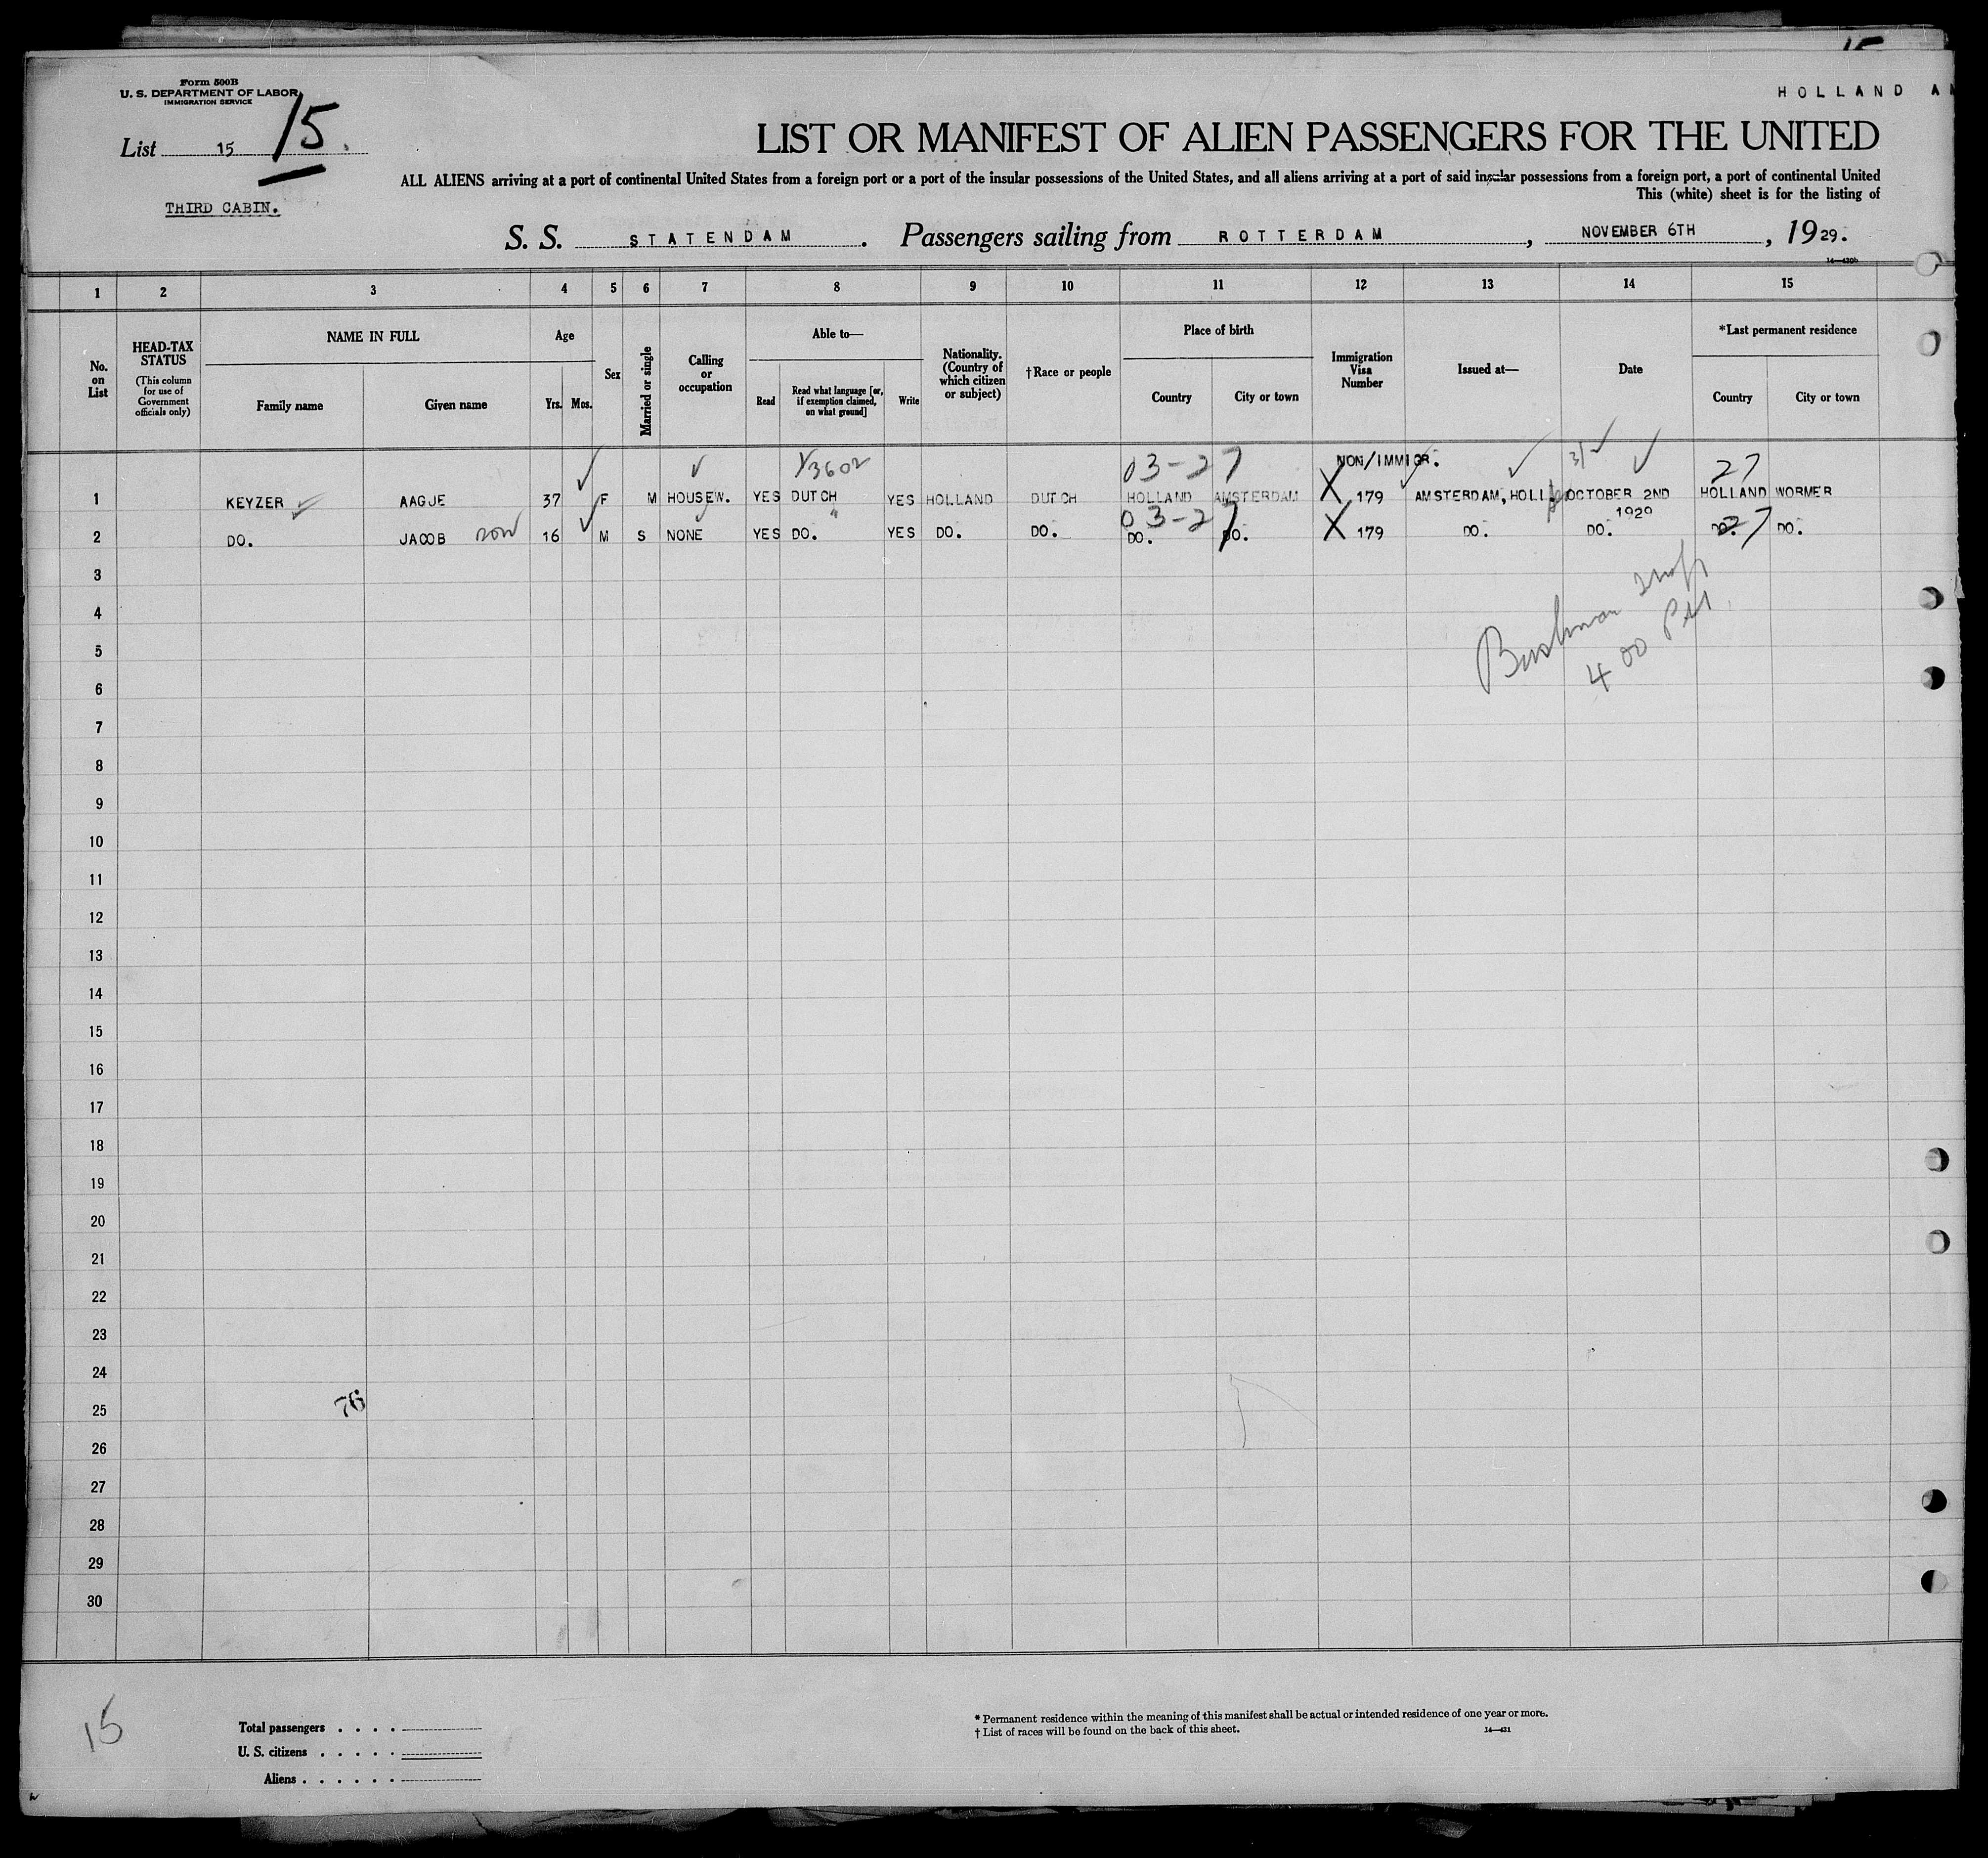 15
Form 500B
U. S. DEPARTMENT OF LABOR
IMMIGRATION SERVICE
HOLLAND A
List 15 15.
LIST OR MANIFEST OF ALIEN PASSENGERS FOR THE UNITED
ALL ALIENS arriving at a port of continental United States from a foreign port or a port of the insular possessions of the United States, and all aliens arriving at a port of said insular possessions from a foreign port, a port of continental United
This (white) sheet is for the listing of
THIRD CABIN.
S. S. STATENDAM. Passengers sailing from ROTTERDAM, NOVEMBER 6TH, 1929.
14—430b
1 2 3 4 5 6 7 8 9 10 11 12 13 14 15
No. on List
HEAD-TAX STATUS
(This column for use of Government officials only)
NAME IN FULL
Family name Given name
Age
Yrs. Mos.
Sex
Married or single
Calling or occupation
Able to—
Read
Read what language [or, if exemption claimed, on what ground]
Write
Nationality. (Country of which citizen or subject)
†Race or people
Place of birth
Country City or town
Immigration Visa Number
Issued at—
Date
*Last permanent residence
Country City or town
✓ ✓ 03-27 NON/IMMIGR. ✓ ✓ ✓ 27
1 KEYZER ✓ AAGJE 37 F M HOUSEW. YES DUTCH YES HOLLAND DUTCH HOLLAND AMSTERDAM X 179 AMSTERDAM, HOLL. OCTOBER 2ND 1929 HOLLAND WORMER
03-27 27
2 DO. JACOB son 16 ✓ M S NONE YES DO. " YES DO. DO. DO. DO. X 179 DO. DO. DO. DO.
3
4
Bushman
4 00 PM
5
6
7
8
9
10
11
12
13
14
15
16
17
18
19
20
21
22
23
24
25 76
26
27
28
29
30
15
Total passengers . . . .
U. S. citizens . . . . .
Aliens . . . . . .
* Permanent residence within the meaning of this manifest shall be actual or intended residence of one year or more.
† List of races will be found on the back of this sheet. 14—431